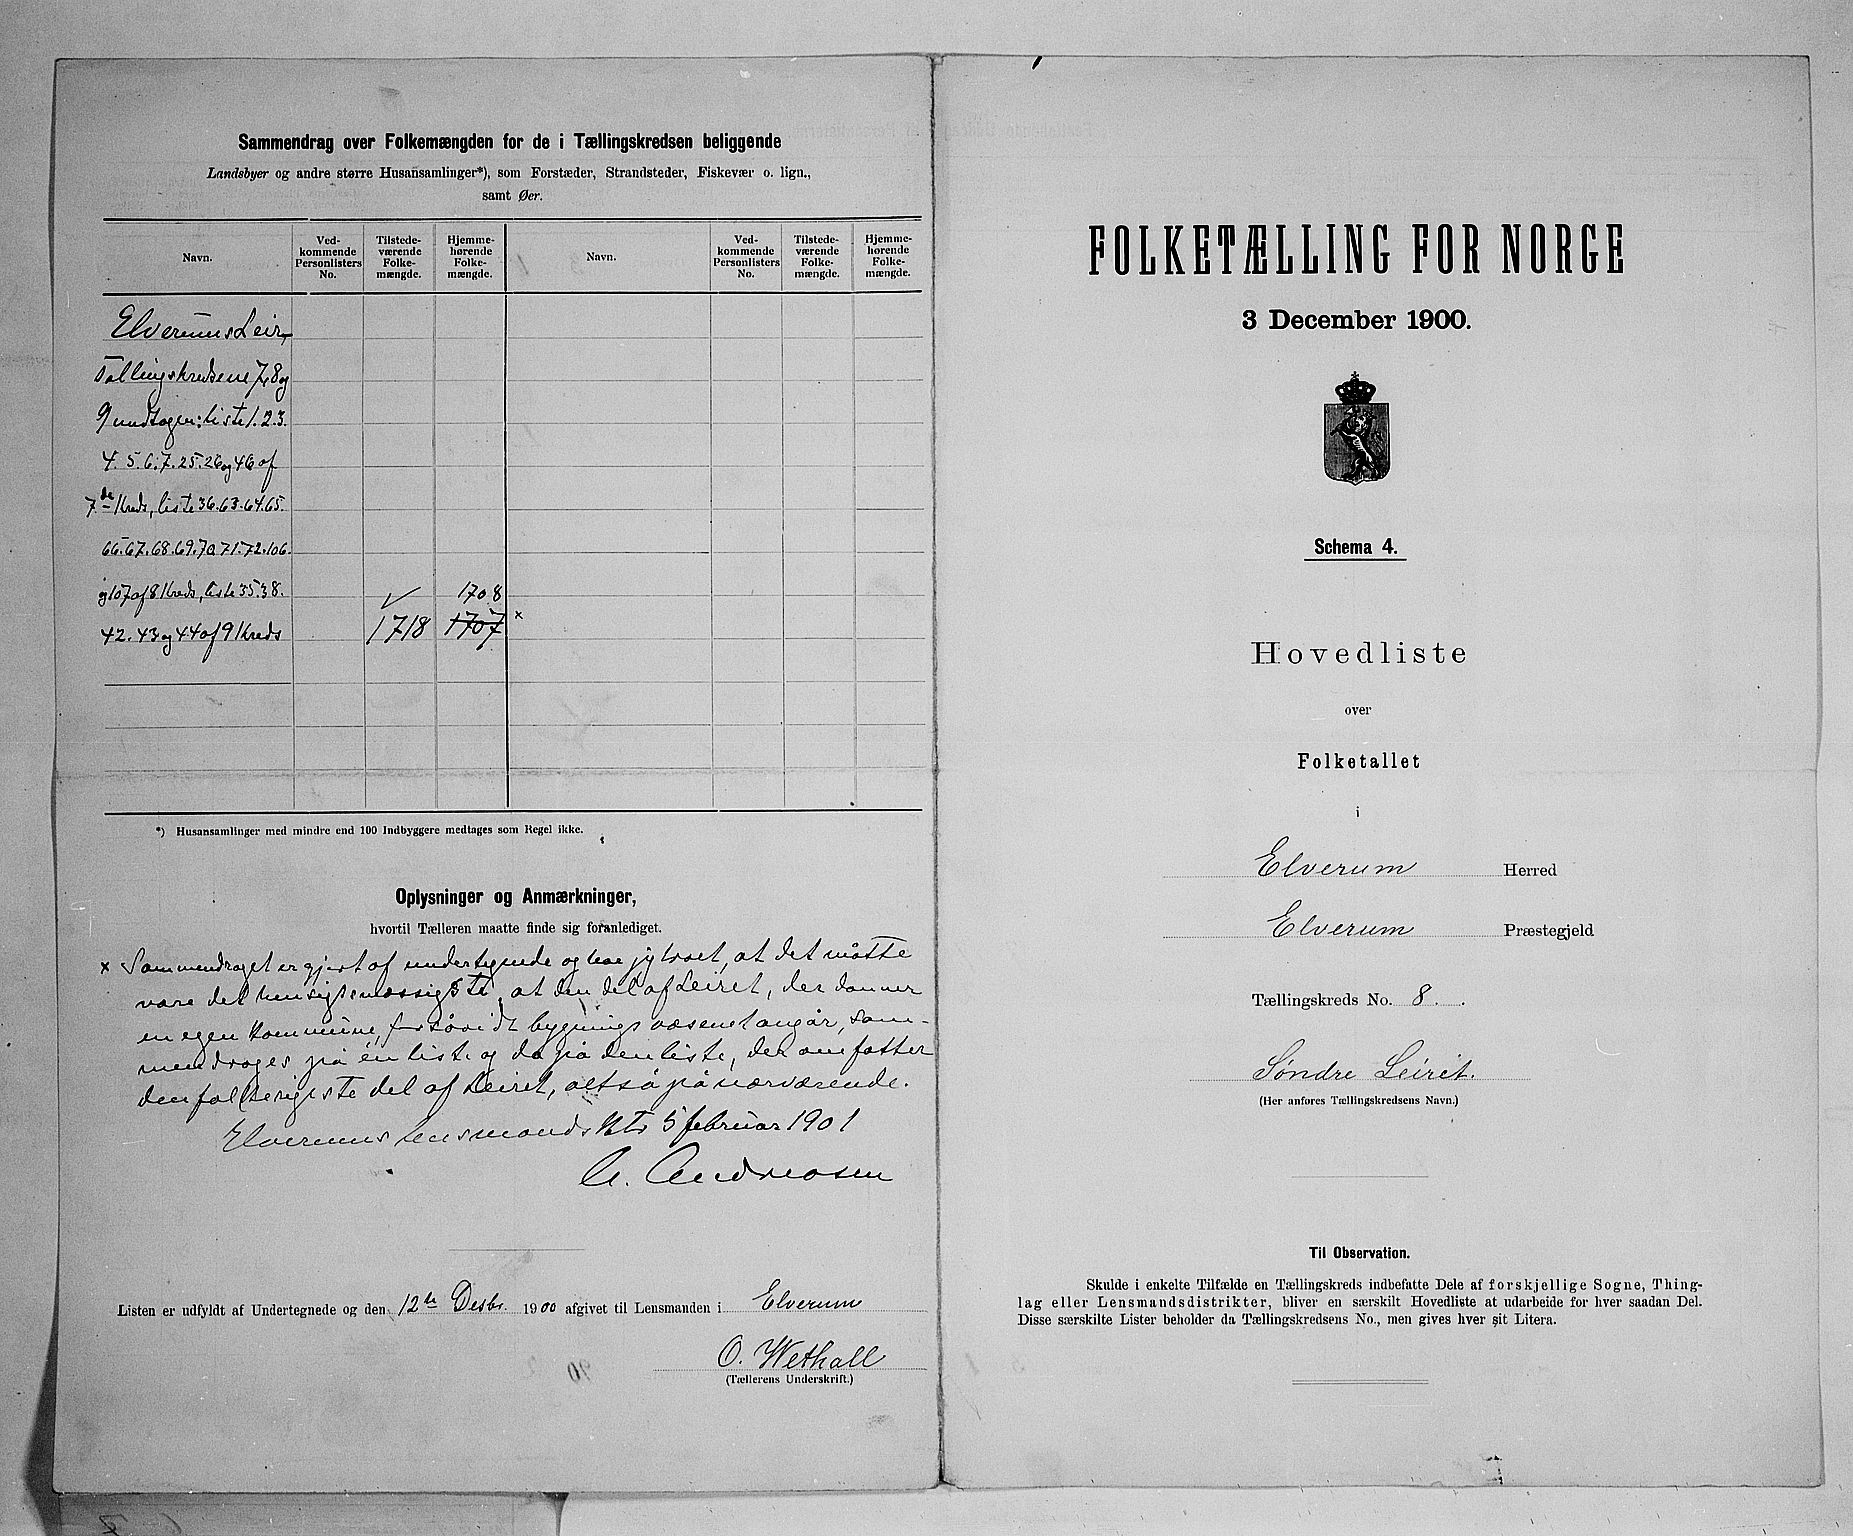 Sammendrag over Folkemængden for de i Tællingskredsen beliggende
Landsbyer og andre større Husansamlinger*), som Forstæder, Strandsteder, Fiskevær o. lign.,
samt Øer.
Navn. Ved-kommende Personlisters No. Tilstede-værende Folke-mængde. Hjemme-hørende Folke-mængde. Navn. Ved-kommende Personlisters No. Tilstede-værende Folke-mængde. Hjemme-hørende Folke-mængde.
Elverums Leir,
Tællingskredsene 7, 8 og
9 undtagen: liste 1. 2. 3.
4. 5. 6. 7. 25. 26 og 46 af
7de Kreds, liste 36. 63. 64. 65.
66. 67. 68. 69. 70 71. 72. 106.
og 107 af 8 Kreds, liste 35. 38. 1708
42. 43 og 44 af 9 Kreds 1718 1707 x
*) Husansamlinger med mindre end 100 Indbyggere medtages som Regel ikke.
Oplysninger og Anmærkninger,
hvortil Tælleren maatte finde sig foranlediget.
x Sammendraget er gjort af undertegnede og har jeg troet, at det måtte
være det hensigtsmæssigste, at den del af Leiret, der danner
en egen Kommune, forsåvidt bygningsvæsenet angår, sam-
mendrages på én liste og da på den liste, der omfatter
den folkerigeste del af Leiret, altså på nærværende.
Elverums lensmands Ktr 5 februar 1901
A. Andreasen
Listen er udfyldt af Undertegnede og den 12te Desbr. 1900 afgivet til Lensmanden i Elverum
O. Wethall
(Tællerens Underskrift.)
FOLKETÆLLING FOR NORGE
3 December 1900.
Schema 4.
Hovedliste
over
Folketallet
i
Elverum Herred
Elverum Præstegjeld
Tællingskreds No. 8.
Søndre Leiret.
(Her anføres Tællingskredsens Navn.)
Til Observation.
Skulde i enkelte Tilfælde en Tællingskreds indbefatte Dele af forskjellige Sogne, Thing-
lag eller Lensmandsdistrikter, bliver en særskilt Hovedliste at udarbeide for hver saadan Del.
Disse særskilte Lister beholder da Tællingskredsens No., men gives hver sit Litera.